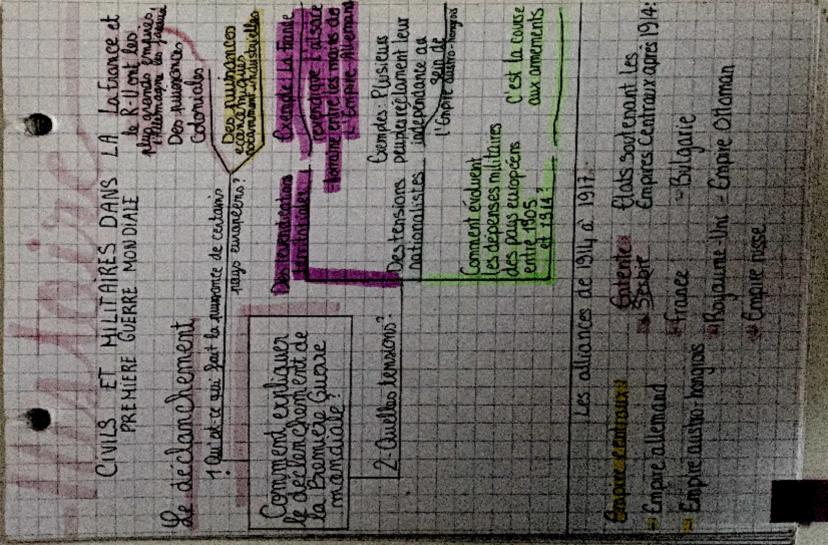 Histoire
CIVILS ET MILITAIRES DANS LA
PREMIÈRE GUERRE MONDIALE
Le déclanchement
1. Qu'est-ce qui fait la puissance de certains
pays européens?
La France et
le R-U ont les
plus grands empires,
Des puissances
Coloniales
Des puissances
économiques
notamment industrielles
Comment expliquer
le déclenchement de
la Première Guerre
mondiale?
2-Quelles tensions?
Des revendications
territoriales
Exemple La France
revendique l'alsace
lorraine entre les mains de
l'Empire Allemand
Des tensions
nationalistes
Exemples: Plusieurs
peuples réclament leur
indépendance au
sein de
l'Empire austro-hongrois
Comment évoluent
les dépenses militaires
des pays européens
entre 1905
et 1914?
C'est la course
aux armements
Les alliances de 1914 à 1917:
Empire centraux:
→ Empire allemand
→ Empire austro-hongrois
Entente:
→ Serbie
→ France
→ Royaume-Uni
→ Empire russe
États soutenant les
Empires Centraux après 1914:
- Bulgarie
- Empire Ottoman